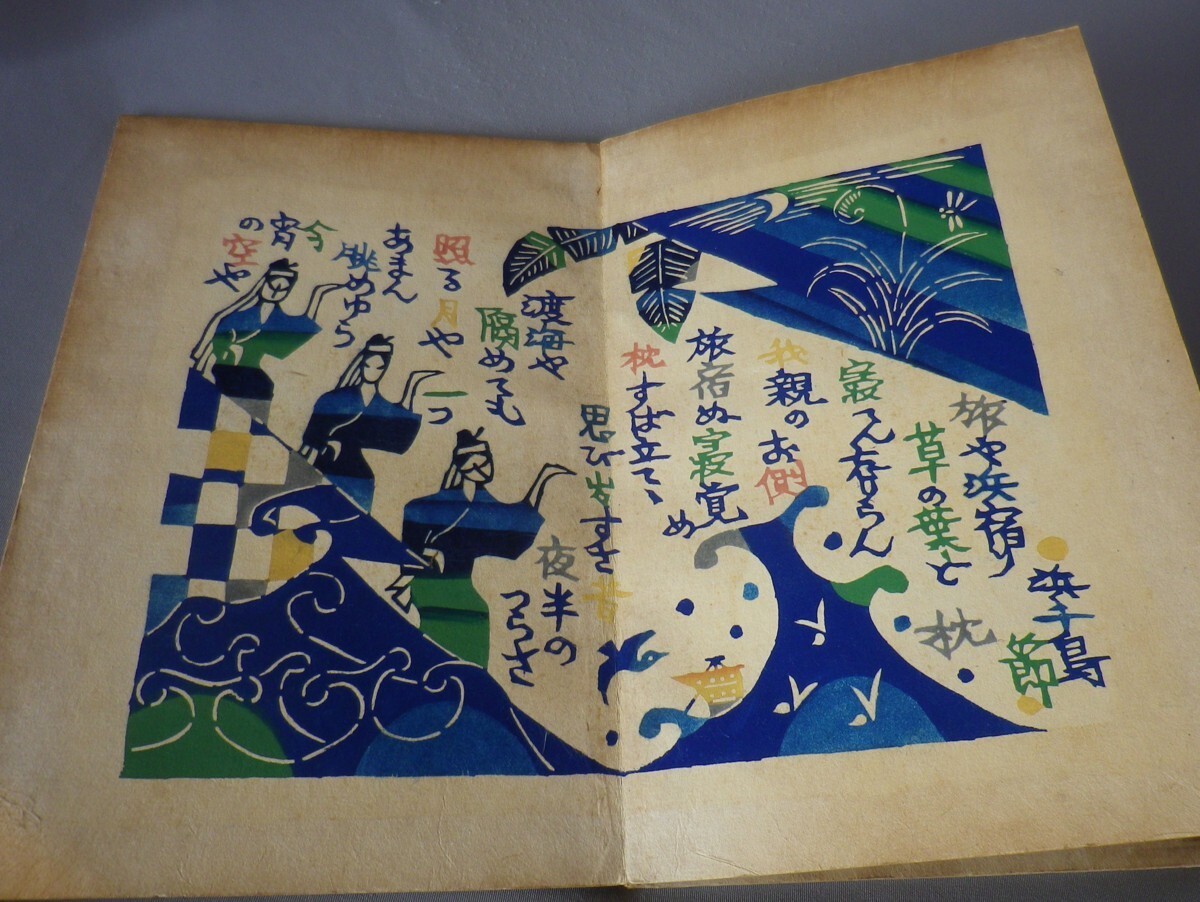 浜千鳥
節
旅や浜宿り
草の葉と
枕
寝てん存らん
我親のお側
旅宿ぬ寝覚
め
枕すば立てゝ
思び出すさ昔
夜半の
つらさ
渡海や
隔めても
照る月や一つ
あまん
眺めゆら
今
宵
の空や